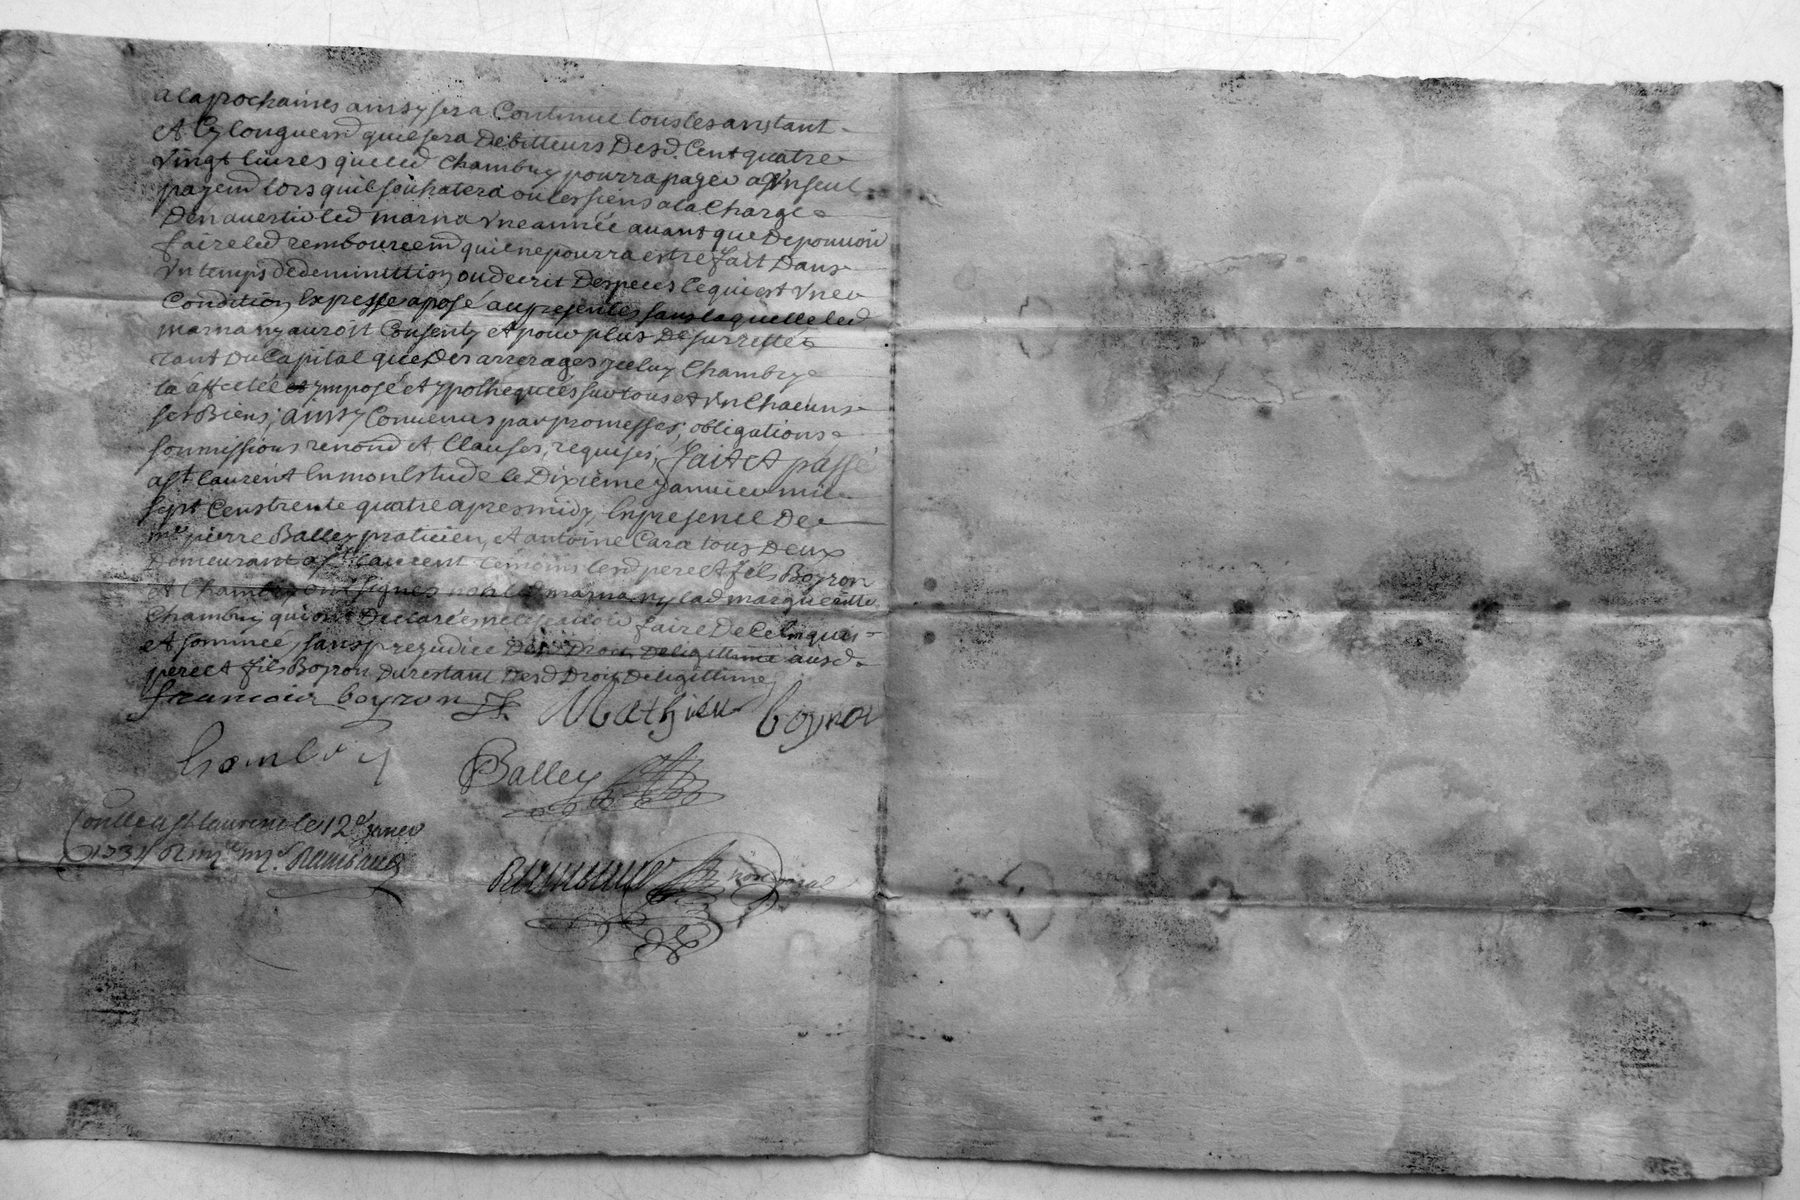 a la prochaines ainsy sera Continué tous les ans tant
Et Cy longuemt quil sera Debitteurs Desd. Cent quatre
Vingt livres que led Chambry pourra payer a Vn seul
payemt lors quil souhatera ou les siens a la Charge
Den avertir led marna Vne année avant que De pouvoir
faire led remboursemt quil ne pourra estre fait Dans
Vn temps De deminution ou decrit Despeces le qui est Vne
Condition Expresse aposé au presentes sans laquelle led
marna ny auroit Consenty et pour plus De surretté
tant Du Capital que Des arrerages yceluy Chambry
la affetée et ymposé et ypothequées sur tous et Vn Chacuns
ses Biens; ainsy Convenus par promesses, obligations
soumissions renond et Clauses requises, fait et passé
a st laurent En mon Estude le Dixieme janvier mil
sept Cens trente quatre apres midy, En presence De
me pierre Balley praticien, et antoine Cara tous Deux
Demeurant a st laurent temoins lesd pere et fils Boyron
et Chambry ont signés non led marna ny lad margueritte
Chambry qui ont Declarés ne sçavoir faire De Ce Enquis
et sommée, sans prejudice Des Droit De legittime ausd
pere et fils Boyron Du restant Desd Droit De legittime
francois boyron Mathieu boyron
hambry Balley
Contlle a st laurent le 12e janer
1734 R me